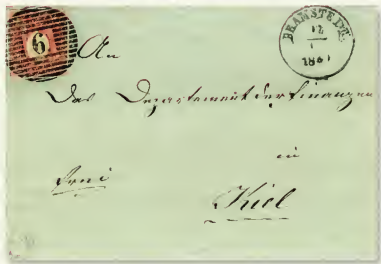 6
BRAMSTEDT.
12
1
An
Das Departement der Finanzen
in
frei
Kiel